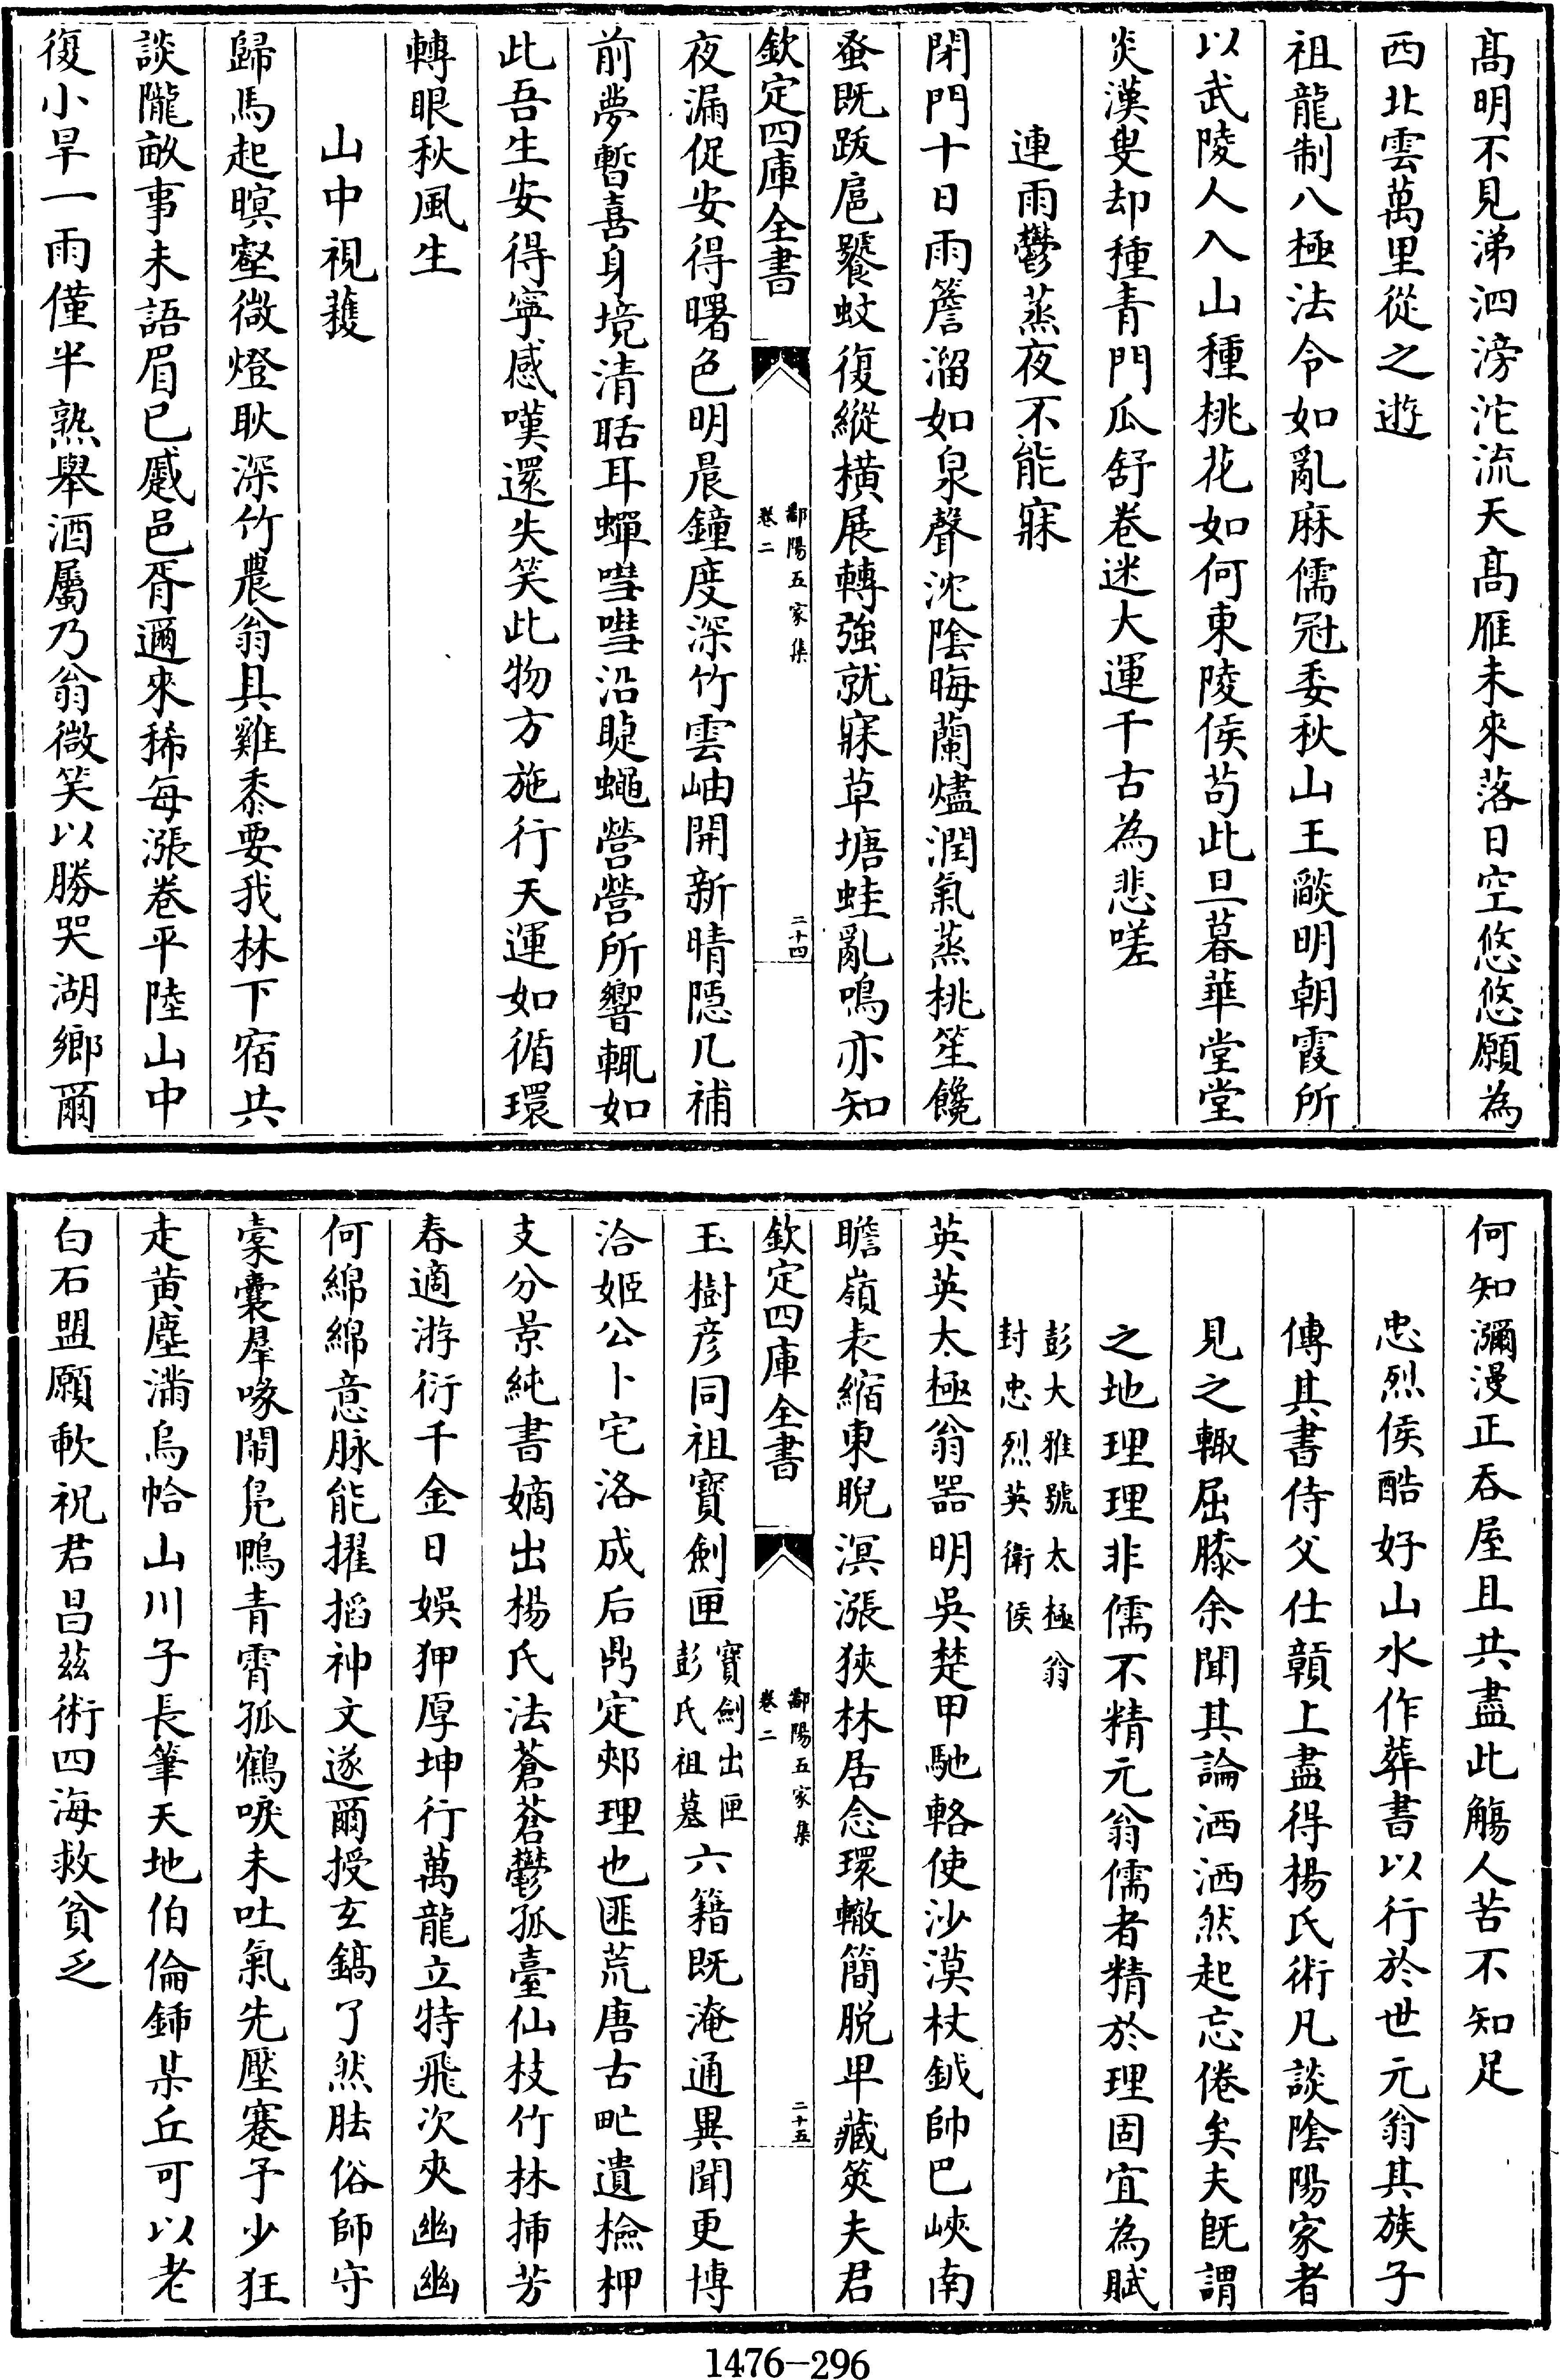 髙明不見涕泗滂沱流天髙雁未來落日空悠悠願為
西北雲萬里從之遊
祖龍制八極法令如亂麻儒冠委秋山王燄明朝霞所
以武陵人入山種桃花如何東陵侯茍此旦暮華堂堂
炎漢叟却種青門瓜舒卷迷大運千古為悲嗟
連雨鬱蒸夜不能寐
閉門十日雨簷溜如泉聲沈陰晦蘭燼潤氣蒸桃笙饞
蚤既跋扈饕蚊復縱橫展轉強就寐草塘蛙亂鳴亦知
欽定四庫全書
鄱陽五家集
卷二
二十四
夜漏促安得曙色明晨鐘度深竹雲岫開新晴隠几補
前夢暫喜身境清聒耳蟬嘒嘒沿睫蠅營營所響輒如
此吾生安得寜感嘆還失笑此物方施行天運如循環
轉眼秋風生
山中視穫
歸馬起暝壑微燈耿深竹農翁具雞黍要我林下宿共
談隴畝事未語眉已慼邑胥邇來稀每漲卷平陸山中
復小旱一雨僅半熟舉酒屬乃翁微笑以勝哭湖鄉爾
何知瀰漫正吞屋且共盡此觴人苦不知足
忠烈侯酷好山水作葬書以行於世元翁其族子
傳其書侍父仕贑上盡得楊氏術凡談陰陽家者
見之輙屈膝余聞其論洒洒然起忘倦矣夫既謂
之地理理非儒不精元翁儒者精於理固宜為賦
彭大雅號太極翁
封忠烈英衛侯
英英太極翁器明吳楚甲馳輅使沙漠杖鉞帥巴峽南
瞻嶺表縮東睨溟漲狹林居念環轍簡脱毕藏筴夫君
欽定四庫全書
鄱陽五家集
卷二
二十五
玉樹彦同祖寶劍匣
寶劍出匣
彭氏祖墓
六籍既淹通異聞更博
洽姬公卜宅洛成后鼎定郟理也匪荒唐古乢遺檢柙
支分景純書嫡出楊氏法蒼蒼鬱孤臺仙枝竹林揷芳
春適游衍千金日娛狎厚坤行萬龍立特飛次夾幽幽
何綿綿意脉能擢搯神文遂爾授玄鎬了然胠俗師守
槖囊羣喙鬧鳬鴨青霄孤鶴唳未吐氣先壓蹇予少狂
走黄塵滿烏帢山川子長筆天地伯倫鍤某丘可以老
白石盟願歃祝君昌兹術四海救貧乏
1476-296